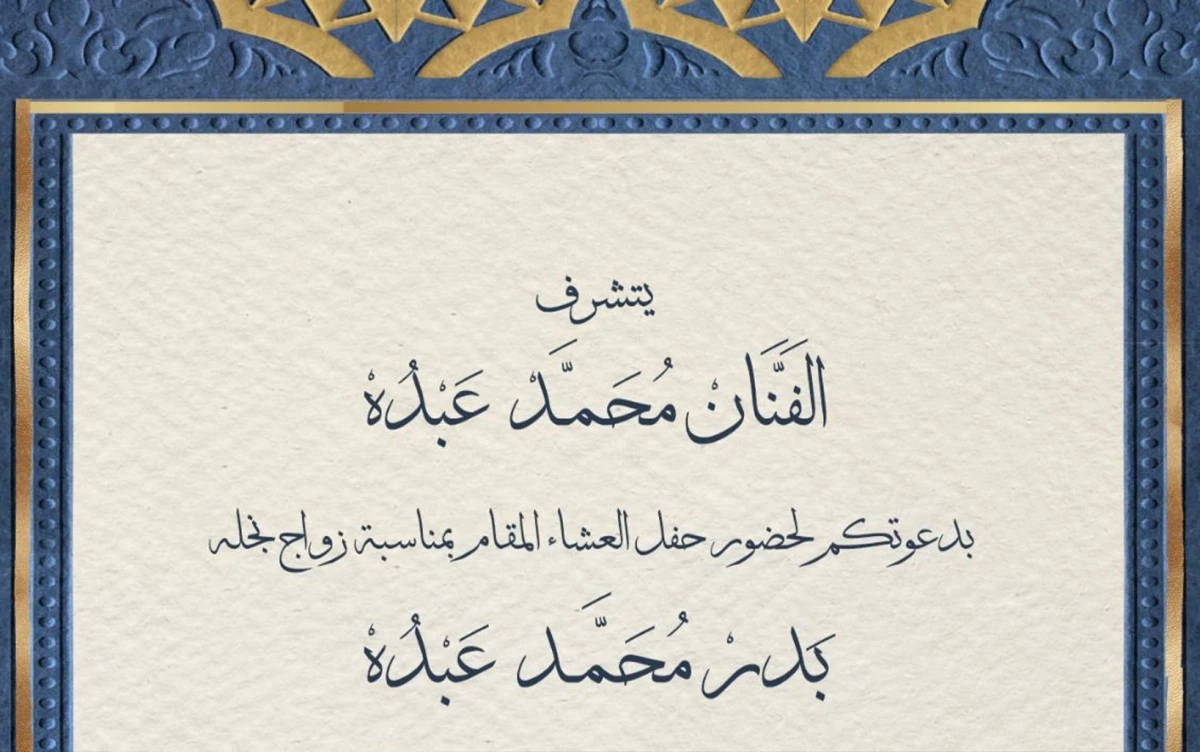 يتشرف
الفَنَّانْ مُحَمَّدْ عَبْدُهْ
بدعوتكم لحضور حفل العشاء المقام بمناسبة زواج نجله
بَدرْ مُحَمَّد عَبْدُهْ